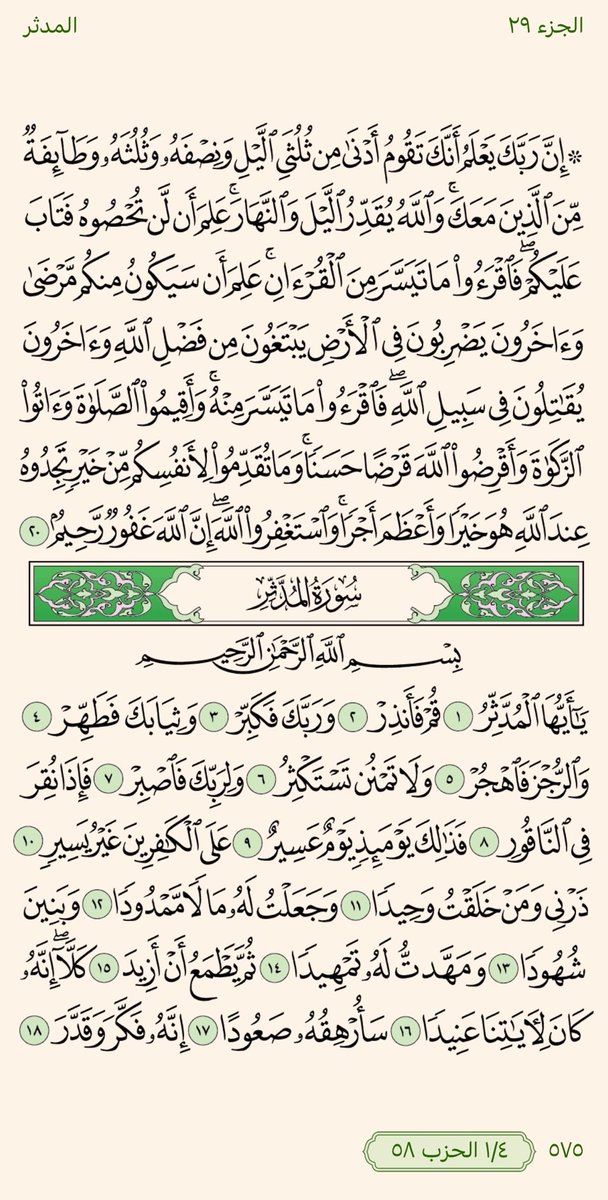 الجزء ٢٩
المدثر
۞ إِنَّ رَبَّكَ يَعۡلَمُ أَنَّكَ تَقُومُ أَدۡنَىٰ مِن ثُلُثَيِ ٱلَّيۡلِ وَنِصۡفَهُۥ وَثُلُثَهُۥ وَطَآئِفَةٞ
مِّنَ ٱلَّذِينَ مَعَكَۚ وَٱللَّهُ يُقَدِّرُ ٱلَّيۡلَ وَٱلنَّهَارَۚ عَلِمَ أَن لَّن تُحۡصُوهُ فَتَابَ
عَلَيۡكُمۡۖ فَٱقۡرَءُواْ مَا تَيَسَّرَ مِنَ ٱلۡقُرۡءَانِۚ عَلِمَ أَن سَيَكُونُ مِنكُم مَّرۡضَىٰ
وَءَاخَرُونَ يَضۡرِبُونَ فِي ٱلۡأَرۡضِ يَبۡتَغُونَ مِن فَضۡلِ ٱللَّهِ وَءَاخَرُونَ
يُقَٰتِلُونَ فِي سَبِيلِ ٱللَّهِۖ فَٱقۡرَءُواْ مَا تَيَسَّرَ مِنۡهُۚ وَأَقِيمُواْ ٱلصَّلَوٰةَ وَءَاتُواْ
ٱلزَّكَوٰةَ وَأَقۡرِضُواْ ٱللَّهَ قَرۡضًا حَسَنٗاۚ وَمَا تُقَدِّمُواْ لِأَنفُسِكُم مِّنۡ خَيۡرٖ تَجِدُوهُ
عِندَ ٱللَّهِ هُوَ خَيۡرٗا وَأَعۡظَمَ أَجۡرٗاۚ وَٱسۡتَغۡفِرُواْ ٱللَّهَۖ إِنَّ ٱللَّهَ غَفُورٞ رَّحِيمُۢ ٢٠
سُورَةُ المُدَّثِّرِ
بِسۡمِ ٱللَّهِ ٱلرَّحۡمَٰنِ ٱلرَّحِيمِ
يَٰٓأَيُّهَا ٱلۡمُدَّثِّرُ ١ قُمۡ فَأَنذِرۡ ٢ وَرَبَّكَ فَكَبِّرۡ ٣ وَثِيَابَكَ فَطَهِّرۡ ٤
وَٱلرُّجۡزَ فَٱهۡجُرۡ ٥ وَلَا تَمۡنُن تَسۡتَكۡثِرُ ٦ وَلِرَبِّكَ فَٱصۡبِرۡ ٧ فَإِذَا نُقِرَ
فِي ٱلنَّاقُورِ ٨ فَذَٰلِكَ يَوۡمَئِذٖ يَوۡمٌ عَسِيرٌ ٩ عَلَى ٱلۡكَٰفِرِينَ غَيۡرُ يَسِيرٖ ١٠
ذَرۡنِي وَمَنۡ خَلَقۡتُ وَحِيدٗا ١١ وَجَعَلۡتُ لَهُۥ مَالٗا مَّمۡدُودٗا ١٢ وَبَنِينَ
شُهُودٗا ١٣ وَمَهَّدتُّ لَهُۥ تَمۡهِيدٗا ١٤ ثُمَّ يَطۡمَعُ أَنۡ أَزِيدَ ١٥ كَلَّآۖ إِنَّهُۥ
كَانَ لِأٓيَٰتِنَا عَنِيدٗا ١٦ سَأُرۡهِقُهُۥ صَعُودًا ١٧ إِنَّهُۥ فَكَّرَ وَقَدَّرَ ١٨
٥٧٥
١/٤ الحزب ٥٨